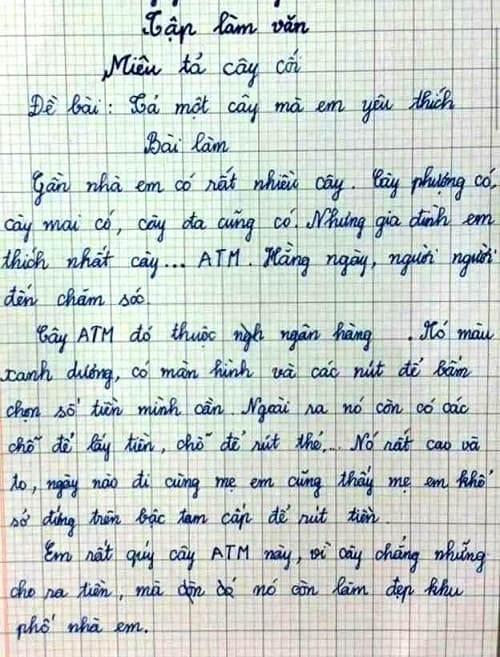 Tập làm văn
Miêu tả cây cối
Đề bài: Tả một cây mà em yêu thích
Bài làm
Gần nhà em có rất nhiều cây. Cây phượng có,
cây mai có, cây đa cũng có. Nhưng gia đình em
thích nhất cây... ATM. Hằng ngày, người người
đến chăm sóc
Cây ATM đó thuộc ngh ngân hàng . Nó màu
xanh dương, có màn hình và các nút để bấm
chọn số tiền mình cần. Ngoài ra nó còn có các
chỗ để lấy tiền, chỗ để rút thẻ... Nó rất cao và
to, ngày nào đi cùng mẹ em cũng thấy mẹ em khổ
sở đứng trên bậc tam cấp để rút tiền.
Em rất quý cây ATM này, vì cây chẳng những
cho ra tiền, mà nó còn làm đẹp khu
phố nhà em.